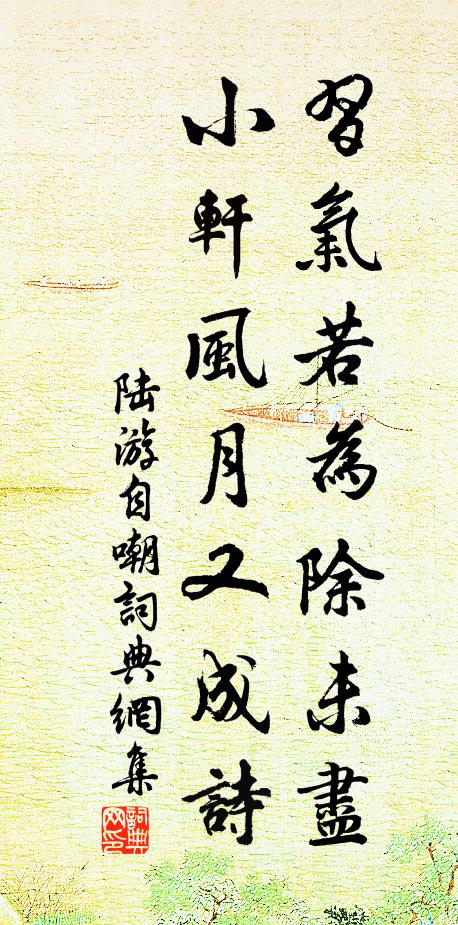 習氣若為除未盡
小軒風月又成詩
陸游自嘲詞典網集
詞典網印